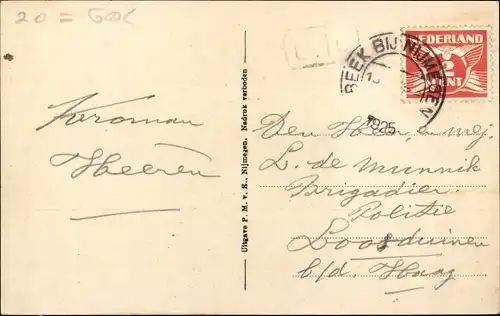 20 = GOL
BEEK BIJ NIJMEGEN
1925
NEDERLAND
2
CENT
Kroman
Heeren
Uitgave P. M. v. E., Nijmegen. Nadruk verboden
Den Heer en mej.
L. de Munnik
Brigadier
Politie
Loosduinen
b/d. Haag